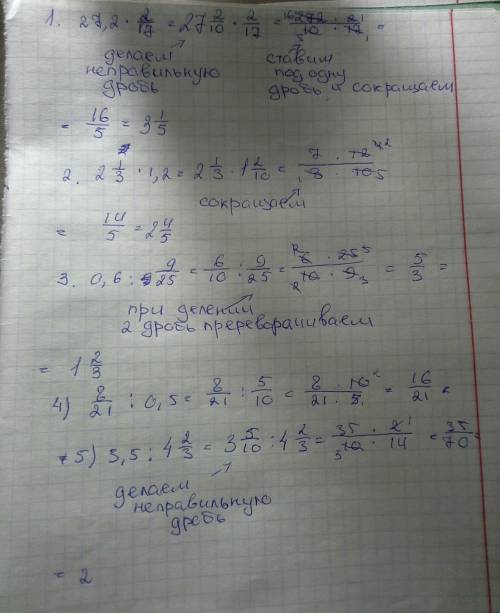 1. 27,2 · 2/17 = 27 2/10 · 2/17 = 272 · 2 / 10 · 17 =
делаем неправильную дробь
ставим под одну дробь и сокращаем
= 16/5 = 3 1/5
2. 2 1/3 · 1,2 = 2 1/3 · 1 2/10 = 7 · 12 / 3 · 10
сокращаем
= 14/5 = 2 4/5
3. 0,6 : 9/25 = 6/10 : 9/25 = 6 · 25 / 10 · 9 = 5/3 =
при делении
2 дробь пререворачиваем
= 1 2/3
4) 8/21 : 0,5 = 8/21 : 5/10 = 8 · 10 / 21 · 5 = 16/21 =
5) 3,5 : 4 2/3 = 3 5/10 : 4 2/3 = 35 · 2 / 10 · 14 = 35/70 =
делаем
неправильную
дробь
= 2